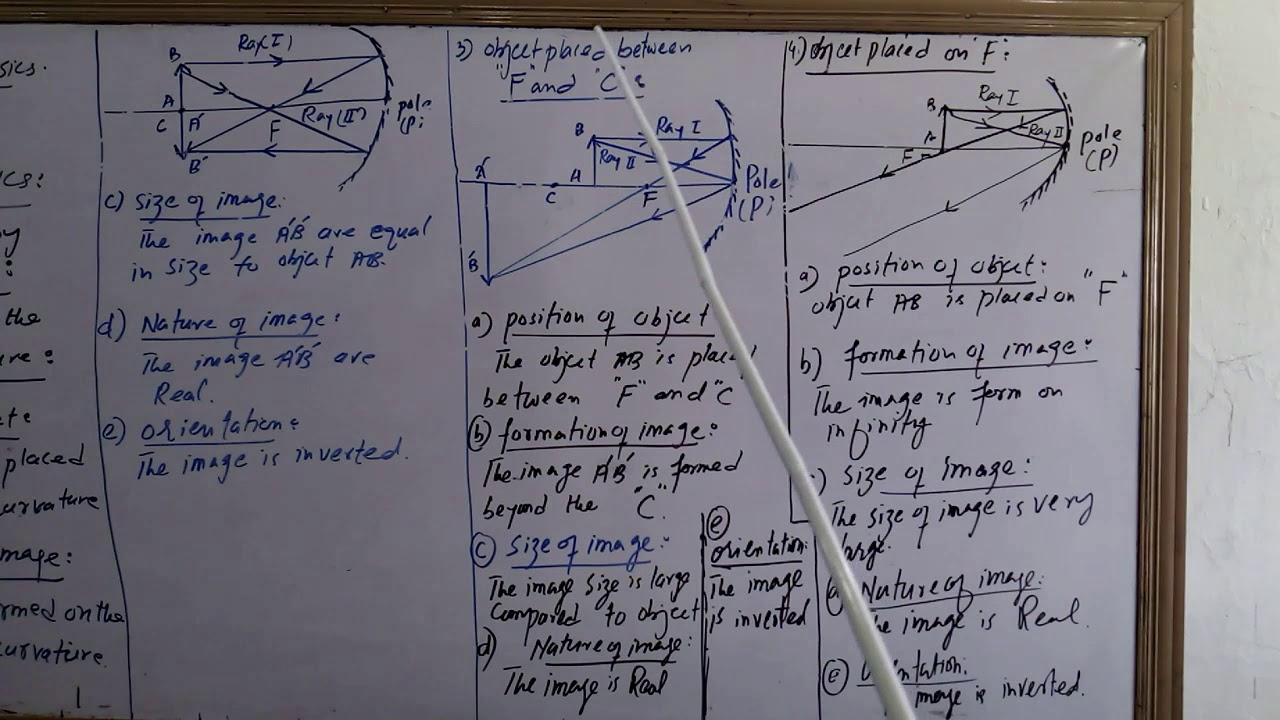 sics.
cs:
the
placed
urvature
mage:
rmed on the
urvature.
B
Ray(I)
A
C
A'
F
Ray(II)
B'
pole
(P)
c) Size of image:
The image A'B' are equal
in size to object AB.
d) Nature of image:
The image A'B' are
Real.
e) orientation:
The image is inverted.
3) object placed between
"F" and "C":
B
Ray I
Ray II
A'
C
A
F
Pole
(P)
B'
a) position of object
The object AB is plac
between "F" and "C
(b) formation of image:
The image A'B' is formed
beyond the "C".
(c) Size of image:
The image size is large
Compared to object
d) Nature of image:
The image is Real
(e)
orientation:
The image
is inverted
4) object placed on F:
B
Ray I
A
Ray II
F
Pole
(P)
a) position of object:
object AB is placed on "F"
b) formation of image:
The image is form on
infinity
) Size of image:
The size of image is very
large.
Nature of image:
The image is Real.
(e) ntation.
image is inverted.